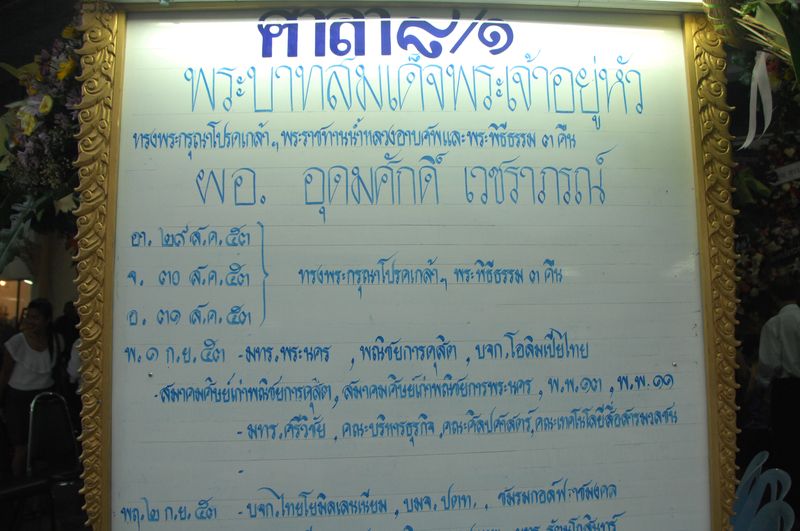 ศาลา ๘/๑
พระบาทสมเด็จพระเจ้าอยู่หัว
ทรงพระกรุณาโปรดเกล้าฯ พระราชทานน้ำหลวงอาบศพและพระพิธีธรรม ๓ คืน
ผอ. อุดมศักดิ์ เวชราภรณ์
อา. ๒๙ ส.ค. ๕๓
จ. ๓๐ ส.ค. ๕๓ ทรงพระกรุณาโปรดเกล้าฯ พระพิธีธรรม ๓ คืน
อ. ๓๑ ส.ค. ๕๓
พ. ๑ ก.ย. ๕๓ - มทร. พระนคร , พณิชยการดุสิต , บจก. โอลิมเปียไทย
- สมาคมศิษย์เก่าพณิชยการดุสิต, สมาคมศิษย์เก่าพณิชยการพระนคร , พ.พ. ๑๓ , พ.พ. ๑๑
- มทร. ศรีวิชัย , คณะบริหารธุรกิจ, คณะศิลปศาสตร์, คณะเทคโนโลยีสื่อสารมวลชน
-
พฤ. ๒ ก.ย. ๕๓ - บจก. ไทยโยมิลเลนเนียม , บมจ. ปตท. , ชมรมกอล์ฟ